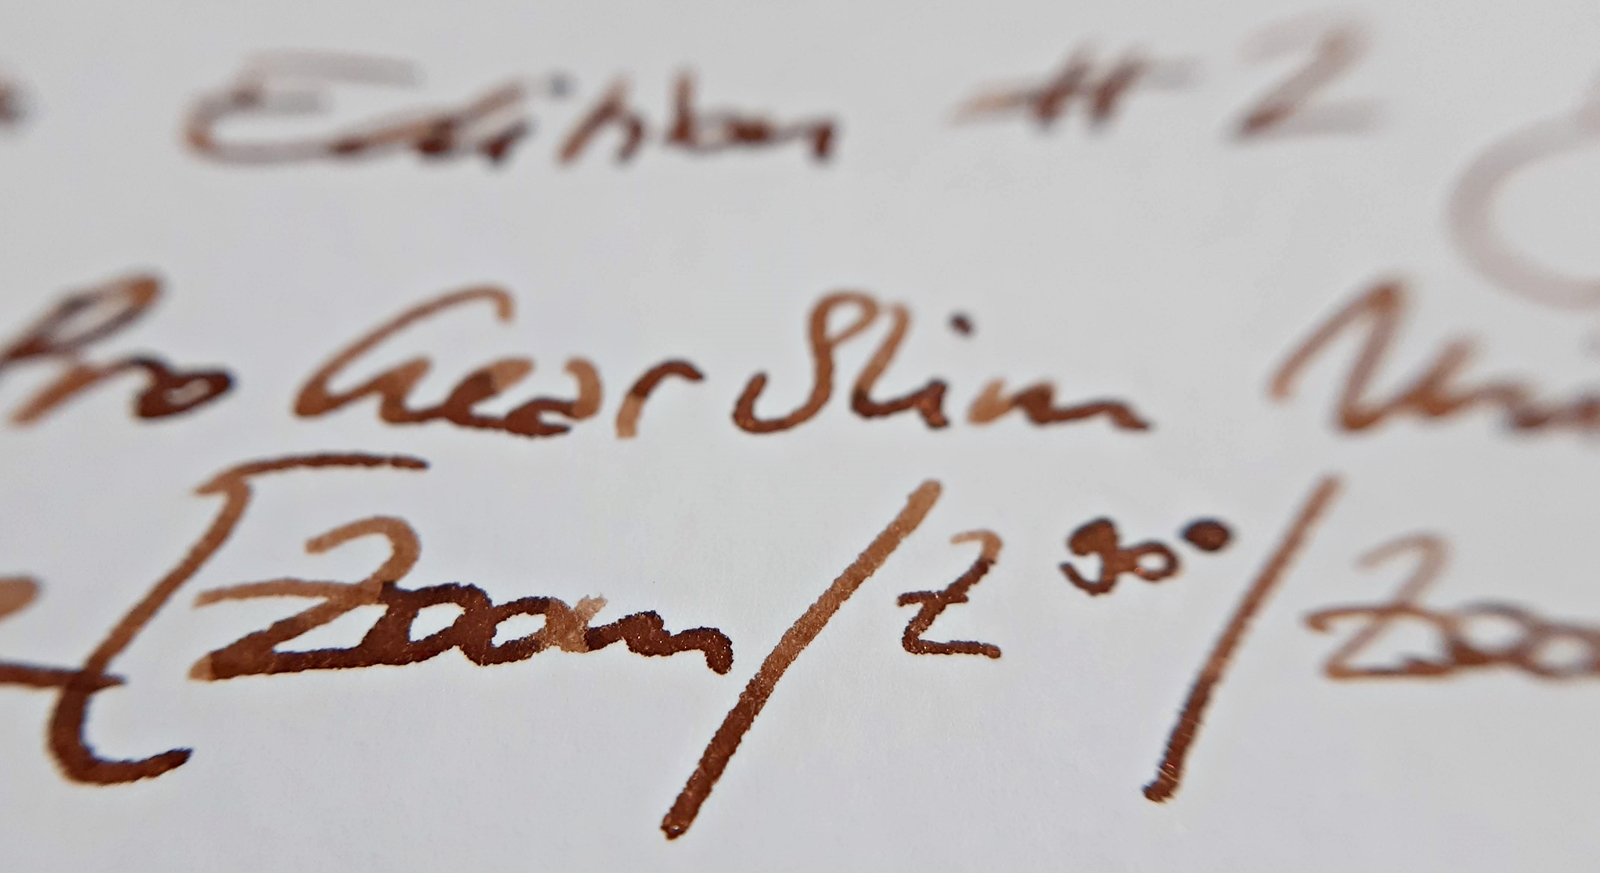 Edition #2
Pro Gear Slim
[Zoom / Z 90° / Zoo